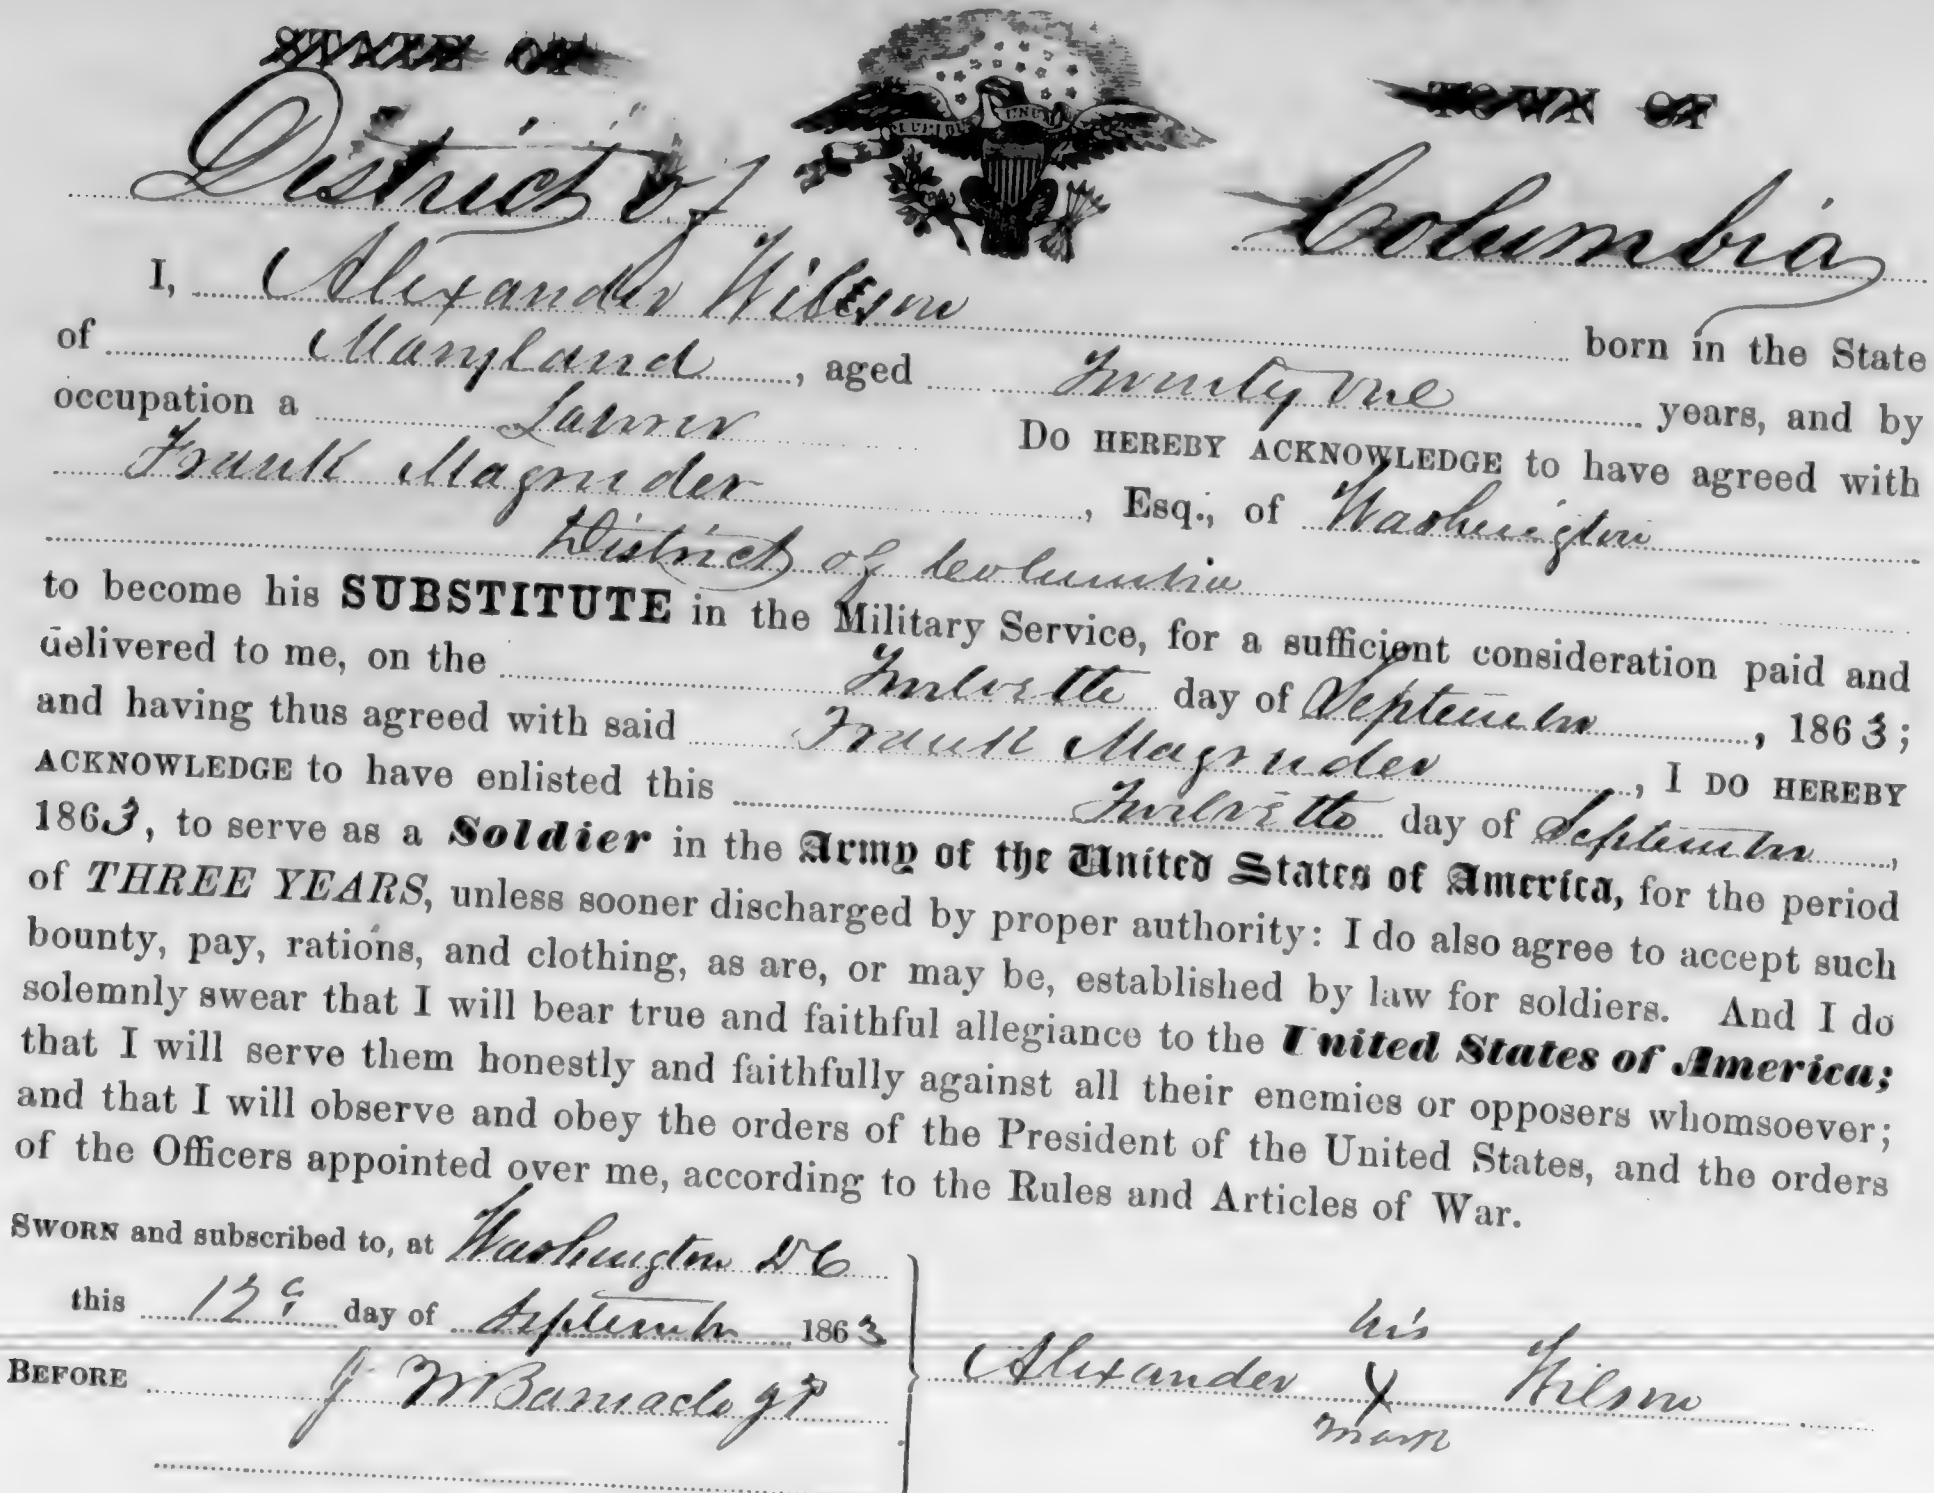 STATE OF
TOWN OF
District of
Columbia
I, Alexander Wilson born in the State
of Maryland, aged Twenty one years, and by
occupation a DO HEREBY ACKNOWLEDGE to have agreed with
Frank Magruder, Esq., of Washington
District of Columbia
to become his SUBSTITUTE in the Military Service, for a sufficient consideration paid and
delivered to me, on the day of September, 1863;
and having thus agreed with said Frank Magruder, I DO HEREBY
ACKNOWLEDGE to have enlisted this day of September,
1863, to serve as a Soldier in the Army of the United States of America, for the period
of THREE YEARS, unless sooner discharged by proper authority: I do also agree to accept such
bounty, pay, rations, and clothing, as are, or may be, established by law for soldiers. And I do
solemnly swear that I will bear true and faithful allegiance to the United States of America;
that I will serve them honestly and faithfully against all their enemies or opposers whomsoever;
and that I will observe and obey the orders of the President of the United States, and the orders
of the Officers appointed over me, according to the Rules and Articles of War.
SWORN and subscribed to, at Washington DC
this day of September 1863
BEFORE
his
Alexander X Wilson
mark